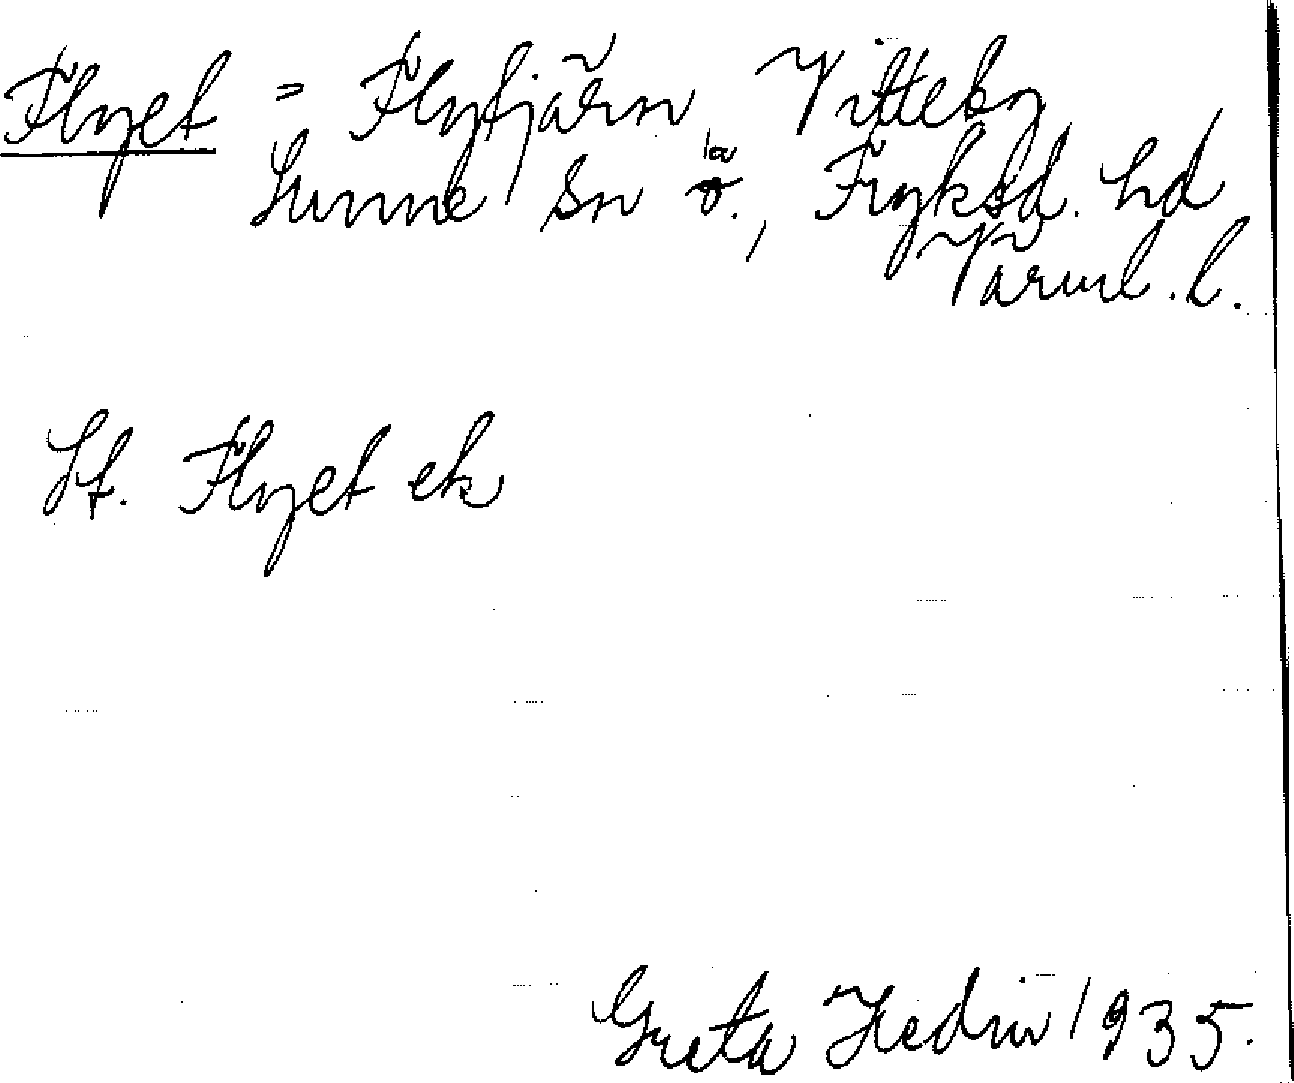 Flyet = Flytjärn, Vitteby
Sunne Sn
Fryksd. hd
Värml. l.
St. Flyet ek
Greta Hedin 1935.